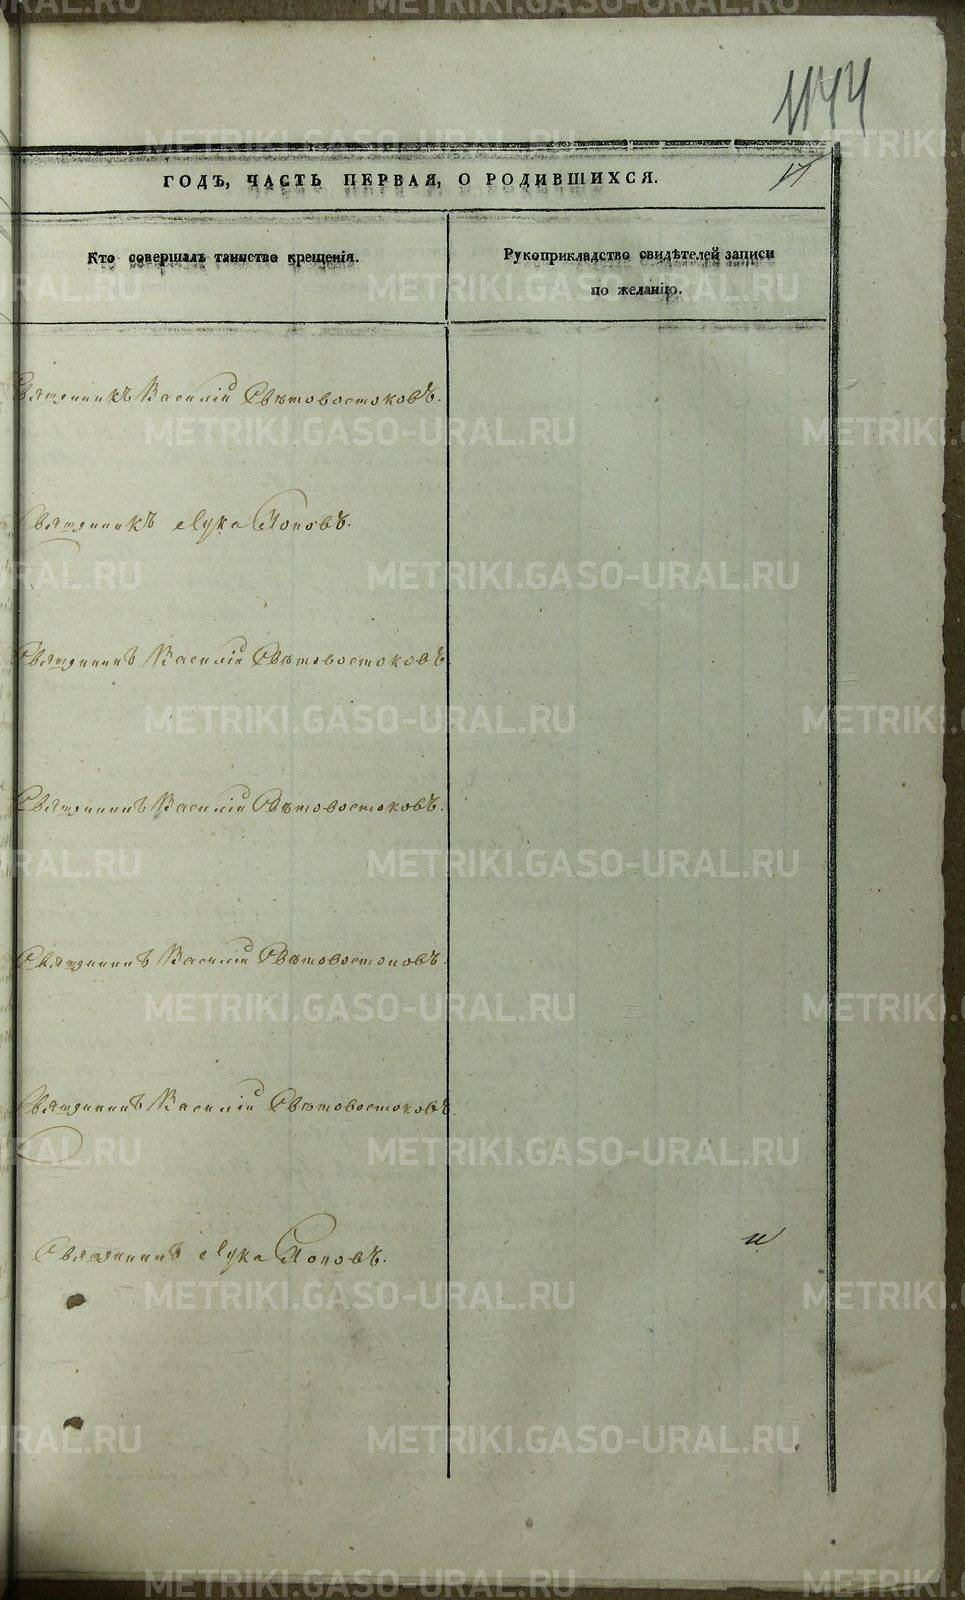 1144
ГОДЪ, ЧАСТЬ ПЕРВАЯ, О РОДИВШИХСЯ.
Кто совершалъ таинство крещенія.
Рукоприкладство свидѣтелей записи
по желанію.
Священникъ Василій Свѣтовостоковъ.
Священникъ Лука Поповъ.
Священникъ Василій Свѣтовостоковъ
Священникъ Василій Свѣтовостоковъ.
Священникъ Василій Свѣтовостоковъ.
Священникъ Василій Свѣтовостоковъ.
Священникъ Лука Поповъ.
METRIKI.GASO-URAL.RU